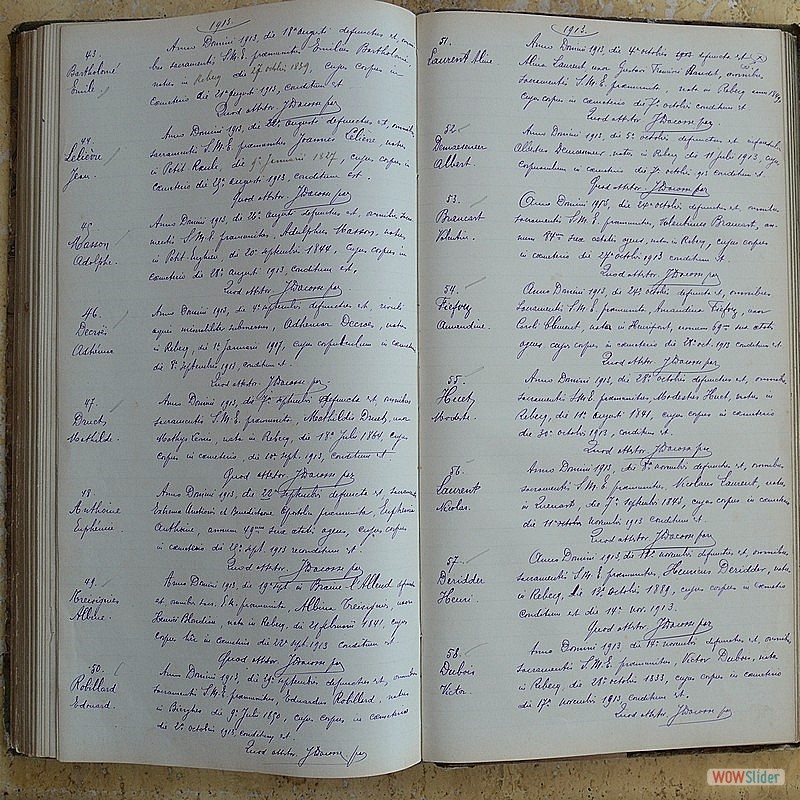 1913.
43.
Bartholomé
Emile.
Anno Domini 1913, die 18ª augusti defunctus est, omni-
bus sacramentis S.M.E. praemunitus Emilius Bartholomé,
natus in Rebecq die 27 octobri 1839, cujus corpus in
coemeterio die 21ª augusti 1913, conditum est
Quod attestor. J Dacosse par
44.
Lelièvre
Jean.
Anno Domini 1913, die augusti defunctus est, omnibus
sacramentis S.M.E. praemunitus Joannes Lelièvre, natus
in Petit Roeulx, die 9ª Januarii 1827, cujus corpus in
coemeterio die 29ª augusti 1913 conditum est.
Quod attestor. J Dacosse par
45.
Masson
Adolphe.
Anno Domini 1913, die 26ª augusti defunctus est, omnibus sacra-
mentis S.M.E. praemunitus, Adolphus Masson, natus
in Petit-Enghien, die 20ª septembris 1844, cujus corpus in
coemeterio die 28ª augusti 1913, conditum est,
Quod attestor. J Dacosse par.
46.
Decroës
Adhémar
Anno Domini 1913, die 4ª septembris defunctus est,
aquis submersus, Adhemar Decroës, natus
in Rebecq, die 1ª Januarii 1917, cujus corpusculum in coemeterio
die 8ª septembris 1913, conditum est.
Quod attestor. J Dacosse par.
47.
Druet
Mathilde.
Anno Domini 1913, die 7ª septembris defuncta est, omnibus
sacramentis S.M.E. praemunita, Mathildis Druet, uxor
nata in Rebecq, die 18ª Julii 1864, cujus
corpus in coemeterio, die 10ª sept. 1913, conditum est
Quod attestor. J Dacosse par
48.
Anthoine
Euphémie.
Anno Domini 1913, die 22ª septembris defuncta est, sacramento
Extremae Unctionis et Benedictione Apostolica praemunita, Euphemia
Anthoine, annum 49um suae aetatis agens, cujus corpus
in coemeterio die 25ª sept. 1913 reconditum est.
Quod attestor. J Dacosse par
49.
Albine.
Anno Domini 1913, die 19ª sept. in Braine-l'Alleud defuncta
est omnibus sacr. E.M. praemunita, Albina uxor
nata in Rebecq, die 21 februarii 1841, cujus
corpus hic in coemeterio die 22ª sept. 1913 conditum est
Quod attestor J Dacosse par
50.
Robillard
Edouard.
Anno Domini 1913, die 29ª septembris defunctus est, omnibus
sacramentis S.M.E. praemunitus, Eduardus Robillard, natus
in Bierghes die 9ª Julii 1850, cujus corpus in coemeterio
die 2ª octobris 1913, conditum est.
Quod attestor J Dacosse par
1913.
51.
Laurent Aline.
Anno Domini 1913, die 4ª octobris defuncta est
Alina Laurent uxor Gustavi Baudet, omnibus
sacramentis S.M.E. praemunita, nata in Rebecq anno
cujus corpus in coemeterio die 7ª octobris conditum est
Quod attestor J Dacosse par
52.
Demaesener
Albert.
Anno Domini 1913, die 5ª octobris defunctus est
Albertus Demaesener, natus in Rebecq die 11 Julii 1913, cujus
corpusculum in coemeterio die 7ª octobris 1913 conditum est.
Quod attestor. J Dacosse par
53.
Brancart
Valentin.
Anno Domini 1913, die 24ª octobris defunctus est, omnibus
sacramentis S.M.E. praemunitus, Valentinus Brancart, an-
num 84um suae aetatis agens, natus in Rebecq, cujus corpus
in coemeterio die 27ª octobris 1913 conditum est.
Quod attestor. J Dacosse par
54.
Amandine.
Anno Domini 1913, die 24ª octobris defuncta est, omnibus
sacramentis S.M.E. praemunita Amandina uxor
Caroli Clément, nata in annum 69um suae aetatis
agens cujus corpus in coemeterio die 28ª oct. 1913 conditum est.
Quod attestor. J Dacosse par
55.
Huet
Modeste.
Anno Domini 1913, die 28ª octobris defunctus est, omnibus
sacramentis S.M.E. praemunitus, Modestus Huet, natus in
Rebecq, die 11ª augusti 1841, cujus corpus in coemeterio
die 30ª octobris 1913, conditum est.
Quod attestor. J Dacosse par
56.
Laurent
Nicolas.
Anno Domini 1913, die 8ª novembris defunctus est, omnibus
sacramentis S.M.E. praemunitus, Nicolaus Laurent, natus
in Quenast, die 7ª septembris 1843, cujus corpus in coemeterio
die 11ª novembris 1913 conditum est.
Quod attestor. J Dacosse par
57.
Deridder
Henri.
Anno Domini 1913, die novembris defunctus est, omnibus
sacramentis S.M.E. praemunitus, Henricus Deridder, natus
in Rebecq, die 13ª octobris 1889, cujus corpus in coemeterio
conditum est die 14ª nov. 1913.
Quod attestor J Dacosse par
58.
Dubois
Victor.
Anno Domini 1913, die 14ª novembris defunctus est, omnibus
sacramentis S.M.E. praemunitus, Victor Dubois, natus
in Rebecq, die 28ª octobris 1833, cujus corpus in coemeterio
die 17ª novembris 1913, conditum est.
Quod attestor. J Dacosse par
WOWSlider